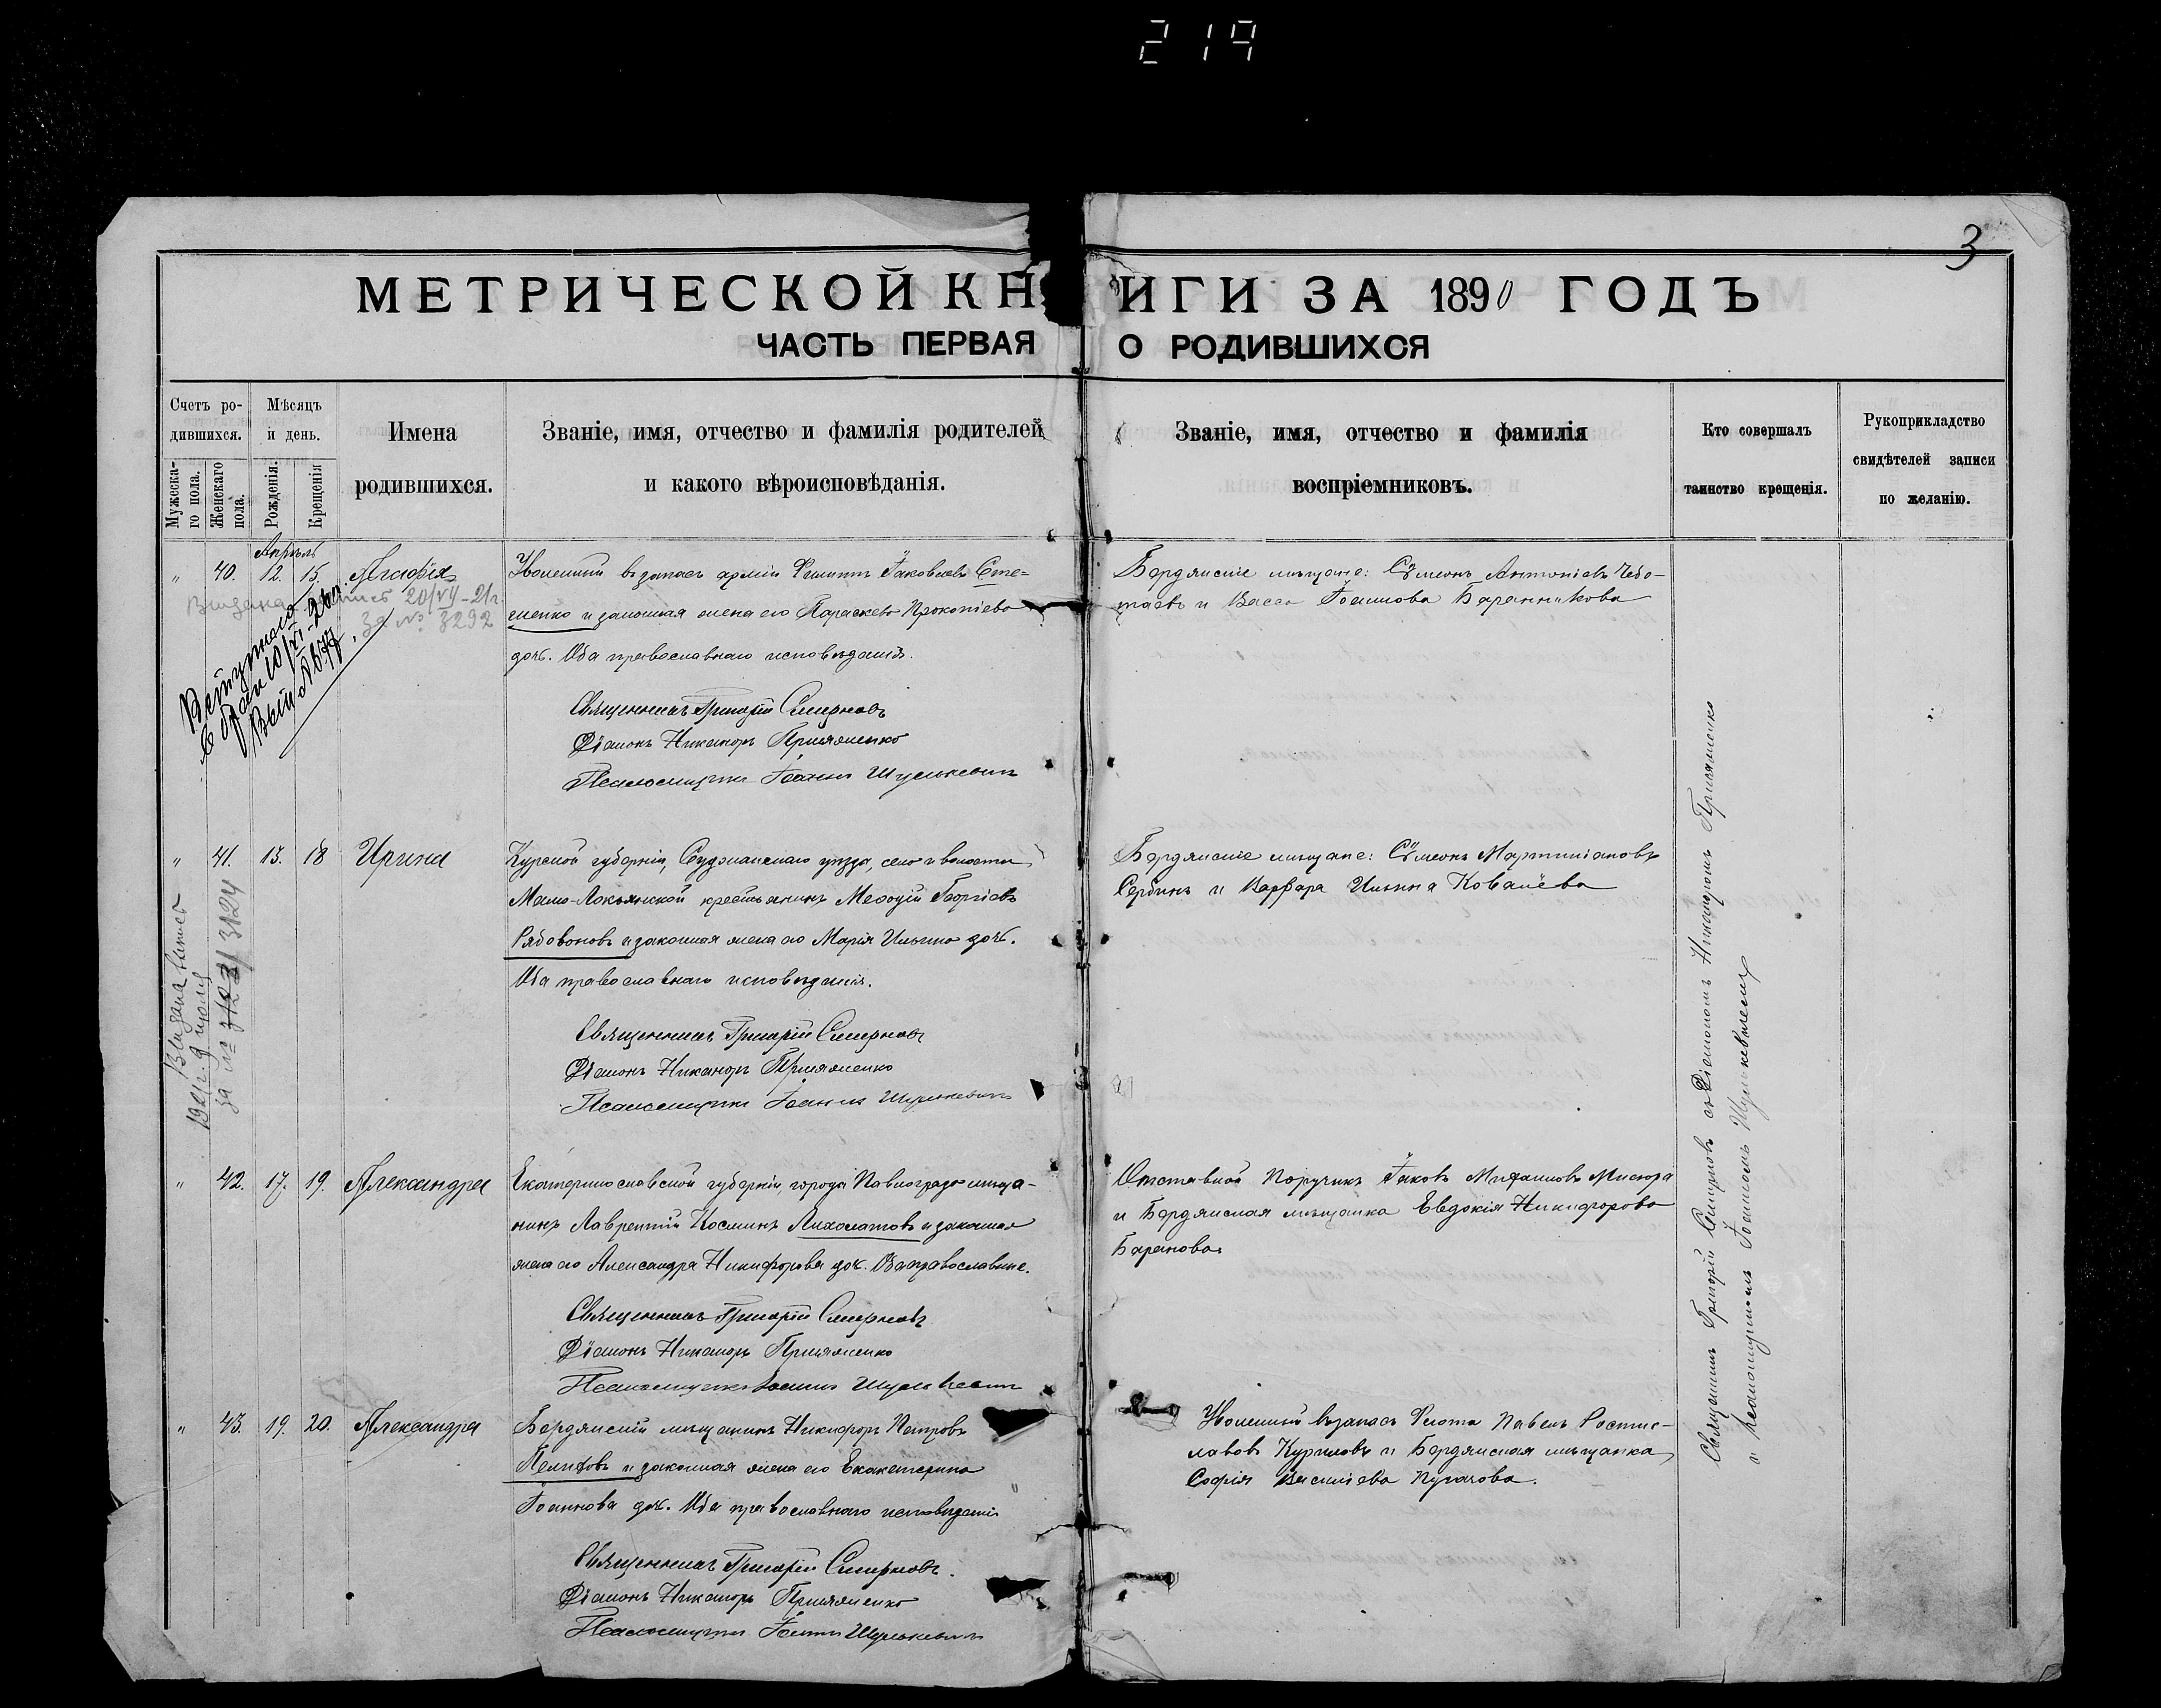 219
3
МЕТРИЧЕСКОЙ КНИГИ ЗА 1890 ГОДЪ
ЧАСТЬ ПЕРВАЯ О РОДИВШИХСЯ
Счетъ ро-
дившихся.
Мужеска-
го пола.
Женскаго
пола.
Мѣсяцъ
и день.
Рожденія.
Крещенія
Имена
родившихся.
Званіе, имя, отчество и фамилія родителей
и какого вѣроисповѣданія.
Званіе, имя, отчество и фамилія
воспріемниковъ.
Кто совершалъ
таинство крещенія.
Рукоприкладство
свидѣтелей записи
по желанію.
Апрѣль
" 40. 12. 15. Агафія
Уволенный въ запасъ арміи Филиппъ Іаковлевъ Сте-
ценко и законная жена его Параскева Прокопіева
доч. Оба православнаго исповѣданія.
Священникъ Григорій Смирновъ
Діаконъ Никаноръ
Псаломщикъ Іоаннъ Шулькевичъ
Бердянскіе мѣщане: Сѵмеонъ Антоніевъ Чебо-
таевъ и Васса Іоаннова Баранникова
20/VII-21г.
за № 3292
" 41. 13. 18 Ирина
Курской губерніи, Суджанскаго уѣзда, села и волости
Мало-Локнянской крестьянинъ Меѳодій Георгіевъ
Рябовоновъ и законная жена его Марія Ильина доч.
Оба православнаго исповѣданія.
Священникъ Григорій Смирновъ
Діаконъ Никаноръ
Псаломщикъ Іоаннъ Шулькевичъ
Бердянскіе мѣщане: Сѵмеонъ Мартиніановъ
Сербинъ и Варвара Ильина Ковалёва
Выдана выпись
1921 г. 9 іюля
за № 3123/3124
" 42. 17. 19. Александра
Екатеринославской губерніи, города Павлограда мѣща-
нинъ Лаврентій Косминъ Лихолатовъ и законная
жена его Александра Никифорова доч. Оба православные.
Священникъ Григорій Смирновъ
Діаконъ Никаноръ
Псаломщикъ Іоаннъ Шулькевичъ
Отставной Поручикъ Іаковъ Михаиловъ Мисюра
и Бердянская мѣщанка Евдокія Никифорова
Баранова.
" 43. 19. 20. Александра
Бердянскій мѣщанинъ Никифоръ Петровъ
Пелиховъ и законная жена его Екатерина
Іоаннова доч. Оба православнаго исповѣданія
Священникъ Григорій Смирновъ.
Діаконъ Никаноръ
Псаломщикъ Іоаннъ Шулькевичъ
Уволенный въ запасъ Флота Павелъ Ростис-
лавовъ Куриловъ и Бердянская мѣщанка
Софія Василіева Пугачова.
Священникъ Григорій Смирновъ съ Діакономъ Никаноромъ
и псаломщикомъ Іоанномъ Шулькевичемъ